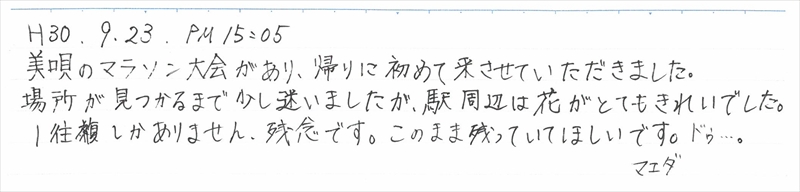 H30.9.23. PM 15:05
美唄のマラソン大会があり、帰りに初めて来させていただきました。
場所が見つかるまで少し迷いましたが、駅周辺は花がとてもきれいでした。
1往復しかありません、残念です。このまま残っていてほしいです。ドゥ…。
マエダ